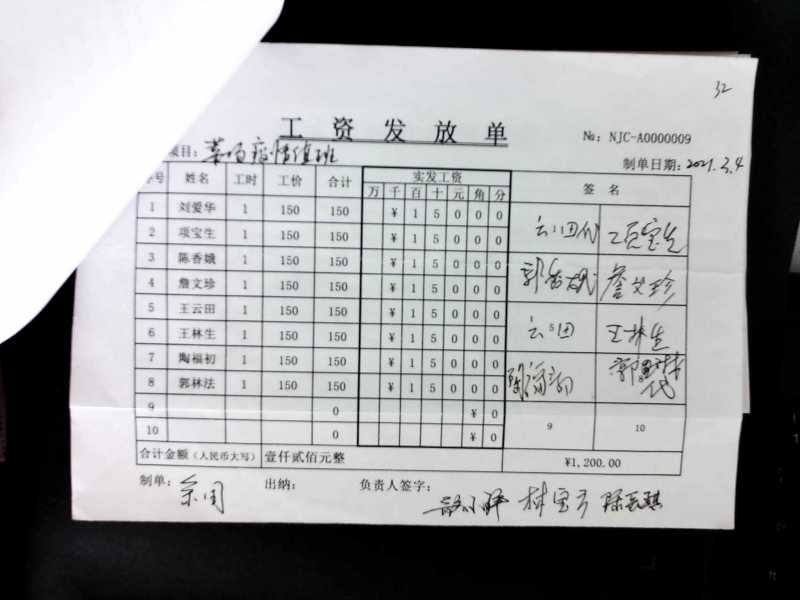 32
工资发放单
№: NJC-A0000009
项目: 菜场疫情值班
制单日期: 2021.3.4
号 姓名 工时 工价 合计 实发工资 签名
万 千 百 十 元 角 分
1 刘爱华 1 150 150 ¥ 1 5 0 0 0
2 项宝生 1 150 150 ¥ 1 5 0 0 0 项宝生
3 陈香娥 1 150 150 ¥ 1 5 0 0 0
4 詹文珍 1 150 150 ¥ 1 5 0 0 0 詹文珍
5 王云田 1 150 150 ¥ 1 5 0 0 0
6 王林生 1 150 150 ¥ 1 5 0 0 0 王林生
7 陶福初 1 150 150 ¥ 1 5 0 0 0
8 郭林法 1 150 150 ¥ 1 5 0 0 0
9 0 ¥ 0 9
10 0 ¥ 0 10
合计金额(人民币大写) 壹仟贰佰元整 ¥1,200.00
制单: 出纳: 负责人签字: